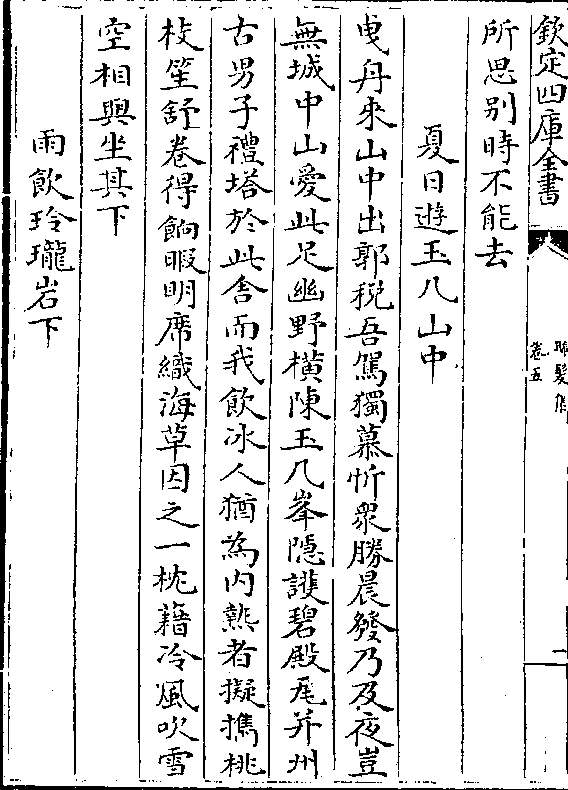 欽定四庫全書
晞髮集
卷五
二
所思别時不能去
夏日遊玉几山中
曵丹來山中出郭稅吾駕獨慕忻衆勝晨發乃及夜豈
無城中山愛此足幽野橫陳玉几峯隱護碧殿瓦并州
古男子禮塔於此舍而我飲冰人猶為内熱者擬擕桃
枝笙舒卷得餉暇明席織海草因之一枕藉冷風吹雪
空相與坐其下
雨飲玲瓏岩下